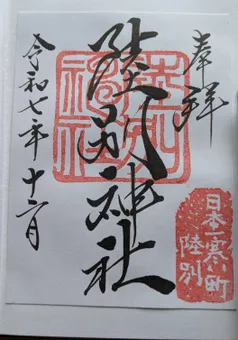 奉拝
陸別神社
令和七年十二月
陸別神社
日本一寒い町
陸別